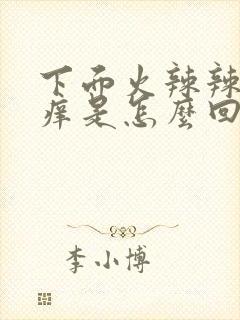 下面火辣辣
痒是怎麼回
李小博